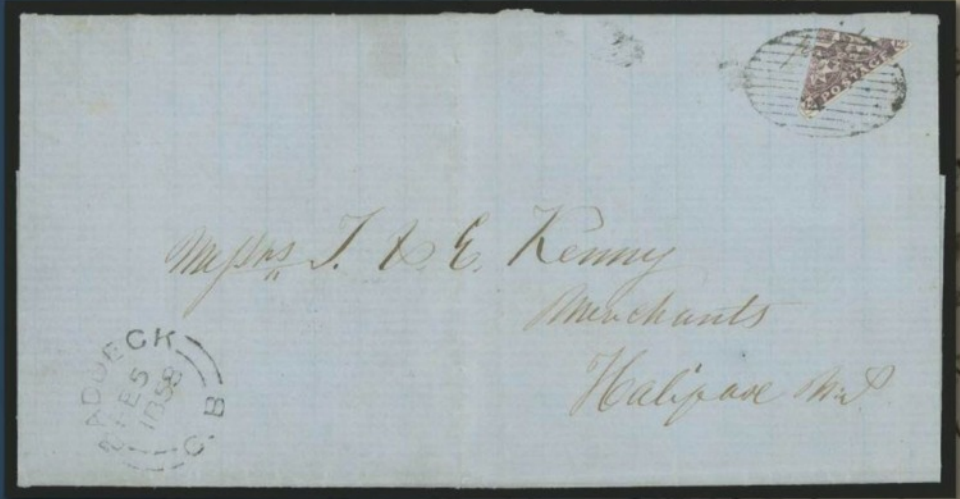 POSTAGE
Messrs T. & E. Kenny
Merchants
Halifax N.S.
BADDECK
FE 5
1858
C. B